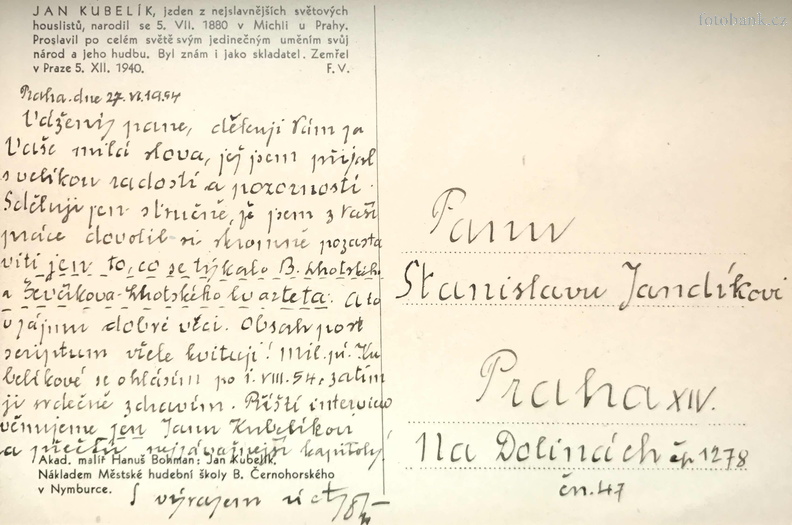 JAN KUBELÍK, jeden z nejslavnějších světových
houslistů, narodil se 5. VII. 1880 v Michli u Prahy.
Proslavil po celém světě svým jedinečným uměním svůj
národ a jeho hudbu. Byl znám i jako skladatel. Zemřel
v Praze 5. XII. 1940. F. V.
fotobank.cz
Praha. dne 27. VI. 1954
Vážený pane, děkuji Vám za
Vaše milá slova, jež jsem přijal
s velikou radostí a pozorností.
Sděluji jen stručně, že jsem z Vaší
práce dovolil si skromně pozasta
viti jen to, co se týkalo B. Lhotského
a Ševčíkova-Lhotského kvarteta. A to
v zájmu dobré věci. Obsah post
scriptum vřele kvituji! Mil. pí. Ku
belíkové se ohlásím po 1. VIII. 54, zatím
ji srdečně zdravím. Příští interview
věnujeme jen Janu Kubelíkovi
a přečtu nejzávažnější kapitoly.
S výrazem úcty
Panu
Stanislavu Jandíkovi
Praha XIV.
Na Dolinách čp 1278
čn. 47
Akad. malíř Hanuš Bohman: Jan Kubelík.
Nákladem Městské hudební školy B. Černohorského
v Nymburce.